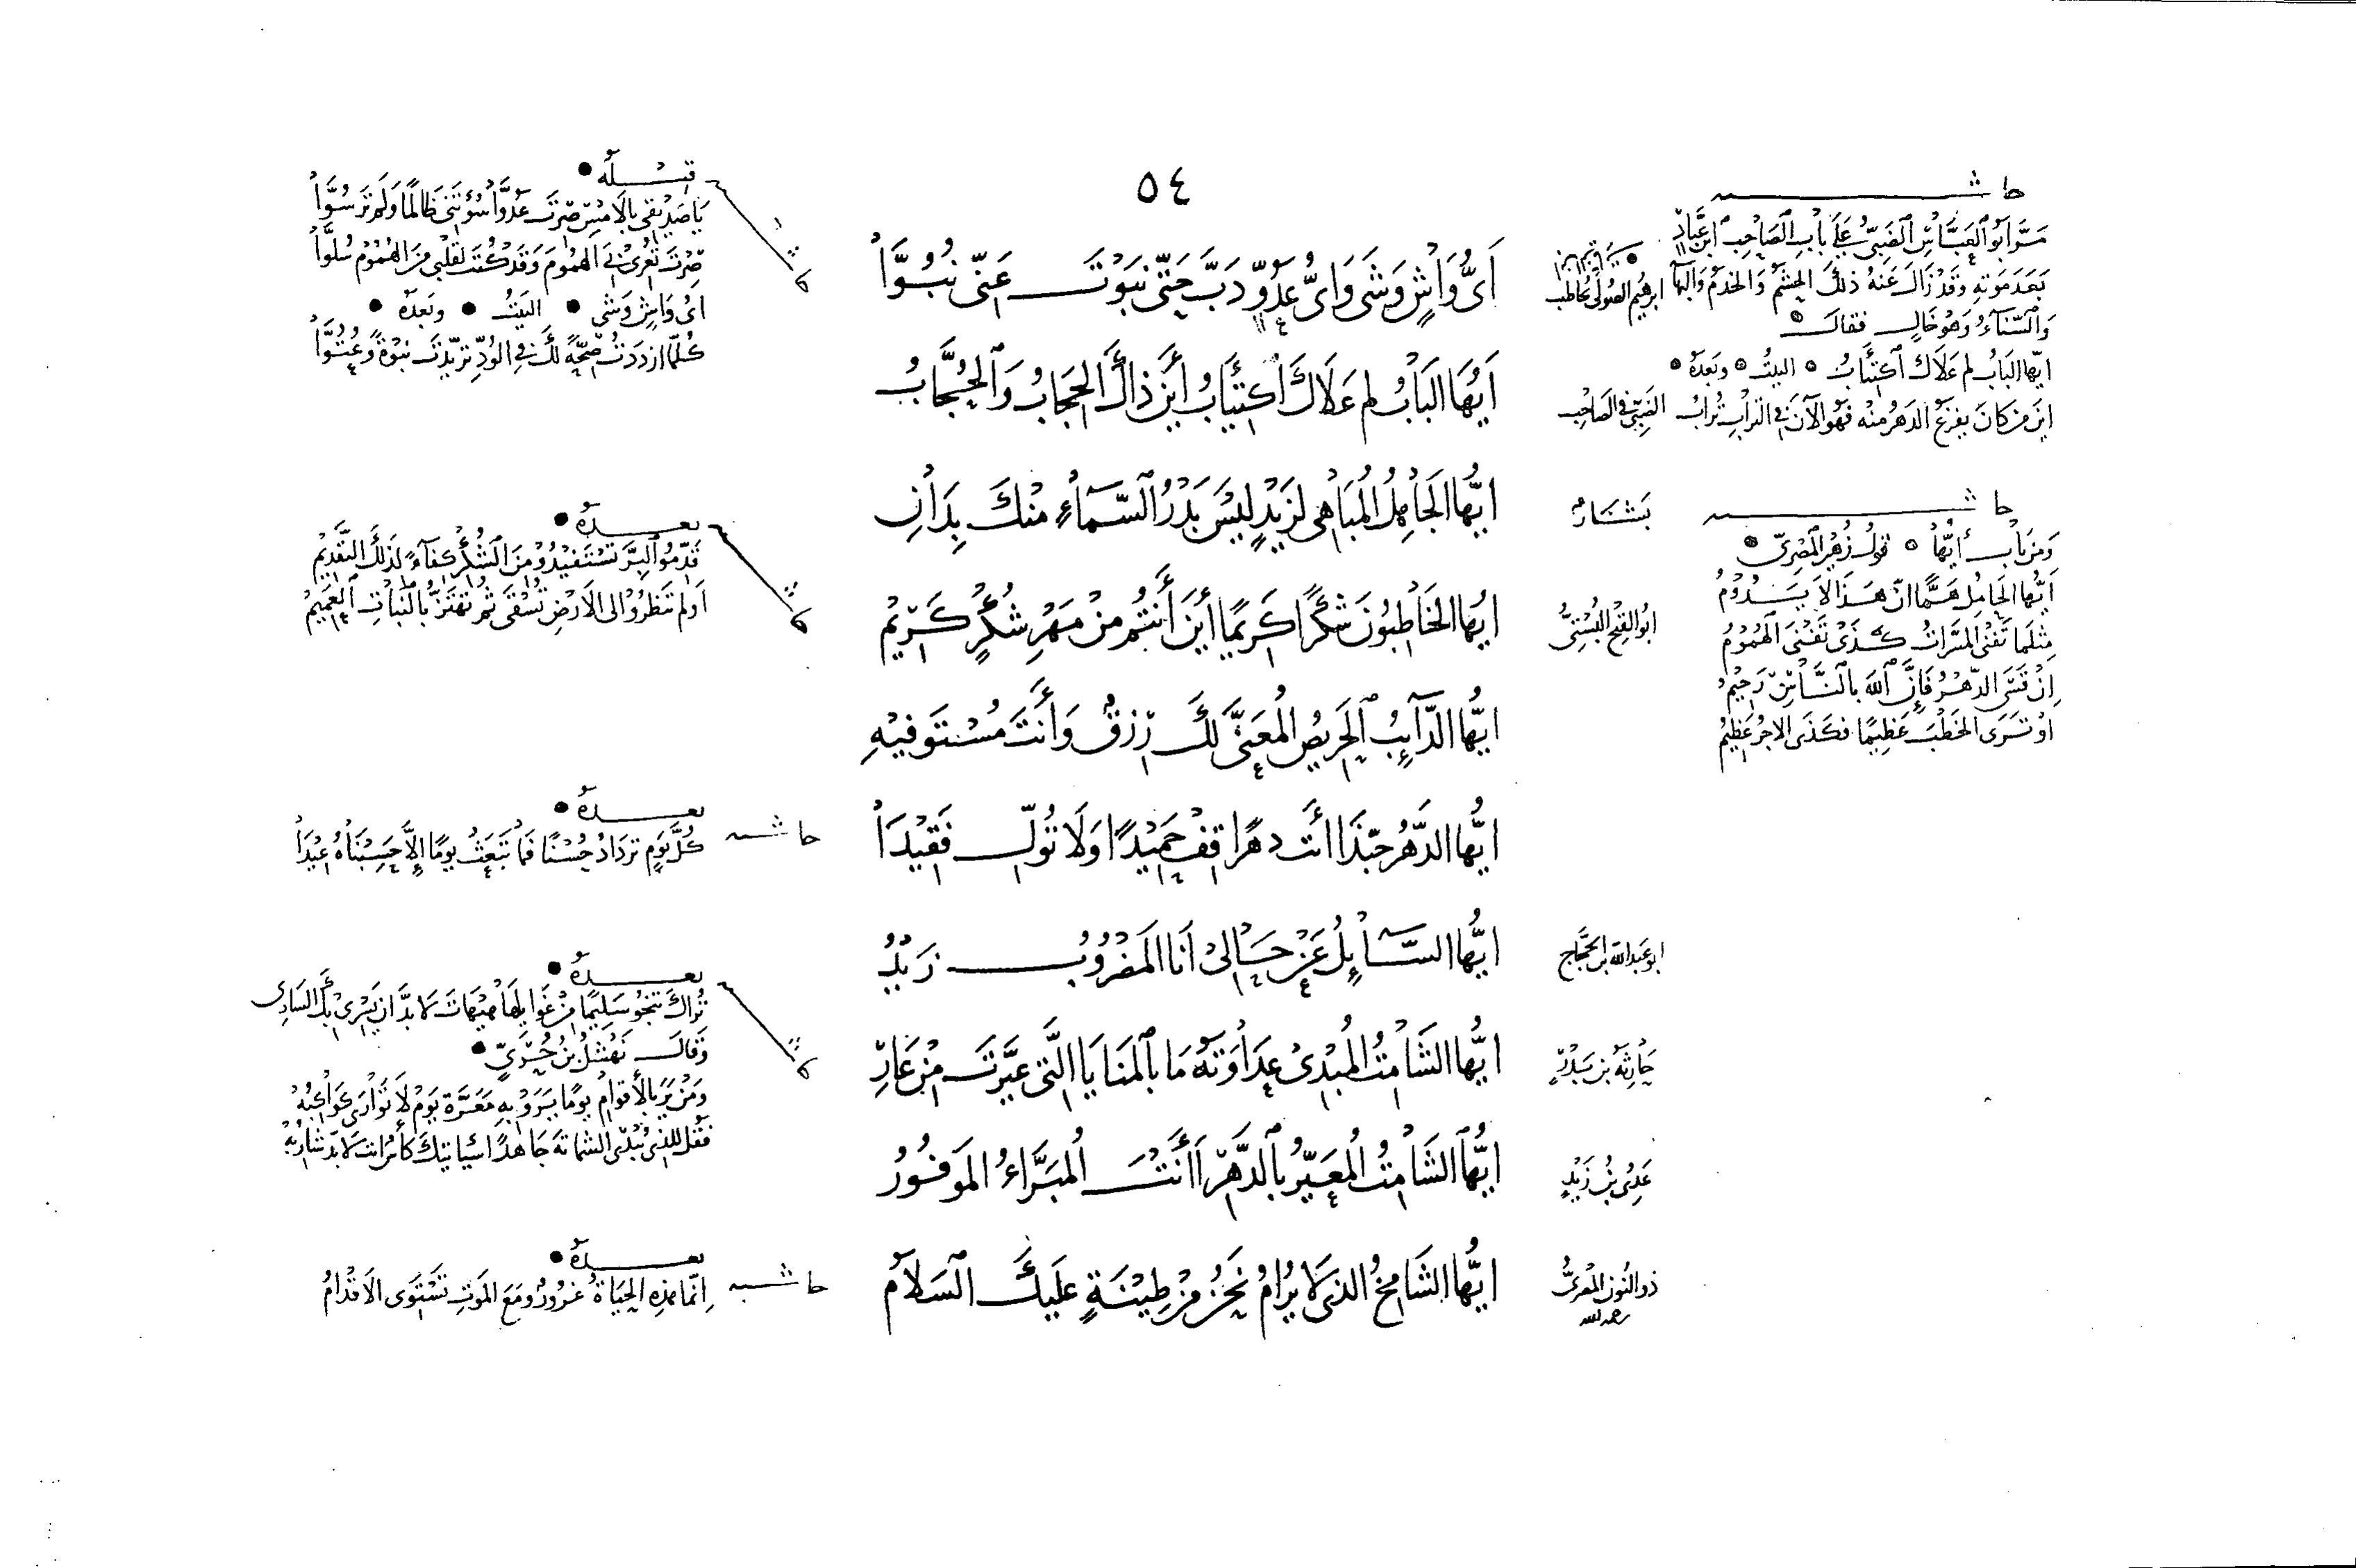 ٥٤
حاشية
مَرَّ ابَو العَبَّاسِ الضَبِّيُّ عَلَى بابِ الصَاحِبِ ابن عَبَّادٍ
بَعدَ مَوتِهِ وَقَد زَالَ عَنهُ ذلكَ الحشَمُ وَالخدَمُ وَالبهَا
وَالسَّنآءُ وَهوَ خَالٍ فقالَ
ايّها البَابُ لم عَلَاك اكتئَابُ البيتُ وبَعدَهُ
اينَ من كانَ يفزعُ الدهرُ منهُ فهوَ الآنَ في الترابِ تُرابُ
حاشية
وَمن بَاب أيُّهَا قولُ زُهَير المصريّ
أيّها الحَامِلُ هَمًّا انّ هَذا لا يَدُومُ
مِثلَما تَفنى المَسَرَّاتُ كَذَى تَفنَى الهُمُومُ
اِن قَسَى الدّهرُ فَاِنَّ اللهَ بالنَّاسِ رَحِيمُ
اَو تَرَى الخَطبَ عَظِيمًا فكَذَى الاجرُ عَظِيمُ
ابرهيم الصُولى يُخاطب
الضَبّيّ في الصَاحِب
بَشّارٌ
ابُو الفتح البُستيُّ
ابو عَبد الله بن الحَجَّاج
حَارِثَةُ بن بَدرٍ
عَدِىُّ بنُ زَيدٍ
ذو النُون المصرىُّ
رحمه الله
اَىُّ وَاشٍ وَشَى وَاىُّ عَدُوٍّ دَبَّ حَتّى نَبَوتَ عَنّى نُبُوَّا
اَيُّهَا البَابُ لم عَلَاكَ اكتِئَابُ أينَ ذاكَ الحِجَابُ وَالحُجَّابُ
ايُّها الجَاهِلُ المُبَاهِى لزَيدٍ ليسَ بَدرُ السّمآءِ منكَ بِدَانِ
ايُّها الخَاطِبُونَ شُكرًا كَرِيمًا أينَ أنتُم مِن مَهرِ شُكرٍ كَرِيمِ
ايُّها الدَّائبُ الحَرِيصُ المُعَنَّى لكَ رِزقٌ وَأنتَ مُستَوفيهِ
ايُّها الدَّهرُ حَبّذا انتَ دهرًا قِف حَمِيدًا وَلَا تُولِّ فَقِيدَا
ايُّها السَّائِلُ عَن حَالى اَنا المَضرُوبُ زَيدُ
ايُّها الشَامِتُ المُبدِىُ عَدَاوَتَهُ مَا بالمَنَايَا الَّتى عَيَّرتَ مِن عَارِ
ايُّها الشَامِتُ المُعَيّرُ بالدَّهرِ اَأنتَ المُبَرَّاءُ المَوفُورُ
ايُّها الشَامِخُ الذى لا يُرَامُ نَحنُ من طِينَةٍ عَليكَ السَلَامُ
قبله
يَا صَدِيقى بالامسِ صِرتَ عَدُوَّا سُؤتَنى ظالمًا وَلَم تَرَ سُوَّا
صِرتَ تُغرى بىَ الهمُومَ وَقَد كُنتَ لقَلبى منَ الهُمُوم سُلوَّا
اىُّ وَاشٍ وَشى البَيتُ وبَعدَهُ
كُلّما ازدَدتُ صِحَّةً لكَ في الوُدِّ تزَيَّدتَ نبوَةً وعُتُوَّا
بعده
قَدّمُوا البِرَّ تَستَفيدُوا منَ الشُكرِ كفآءً لذَلكَ التَّقدِيمِ
اَولم تَنظُرُوا الى الاَرضِ تُسقَى ثم تهتَزُّ بالنَباتِ العَمِيمِ
بعده
حاشية
كُلَّ يَومٍ تَزدَادُ حُسنًا فمَا تَبعَثُ يَومًا اِلَّا حَسِبنَاهُ عِيدَا
بعده
تُراكَ تنجُو سَليمًا من غوَايلهَا هيهَاتَ لا بدَّ ان يَسرىَ بكَ السَارِى
وَقالَ نَهشَلُ بنُ حُرَّيٍّ
وَمَن يَرَ بالأقوَامِ يَومًا يَرَوا بهِ مَعَرَّةَ يَومٍ لَا تُوَارَى كوَاكبُه
فَقُل للذى يُبدى الشماتَةَ جَاهدًا سيَاتيكَ كأسٌ انتَ لا بدّ شاربُه
بعده
حاشيه
اِنّما هَذِهِ الحَيَاةُ غرُورٌ ومَعَ المَوتِ تَستَوى الاَقدَامُ